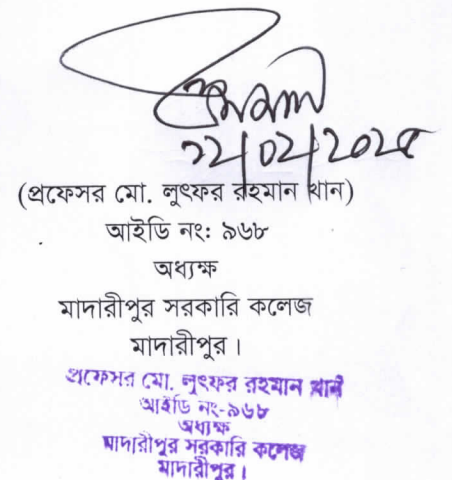 ২২/০২/২০২৫
(প্রফেসর মো. লুৎফর রহমান খান)
আইডি নং: ৯৬৮
অধ্যক্ষ
মাদারীপুর সরকারি কলেজ
মাদারীপুর।
প্রফেসর মো. লুৎফর রহমান খান
আইডি নং-৯৬৮
অধ্যক্ষ
মাদারীপুর সরকারি কলেজ
মাদারীপুর।